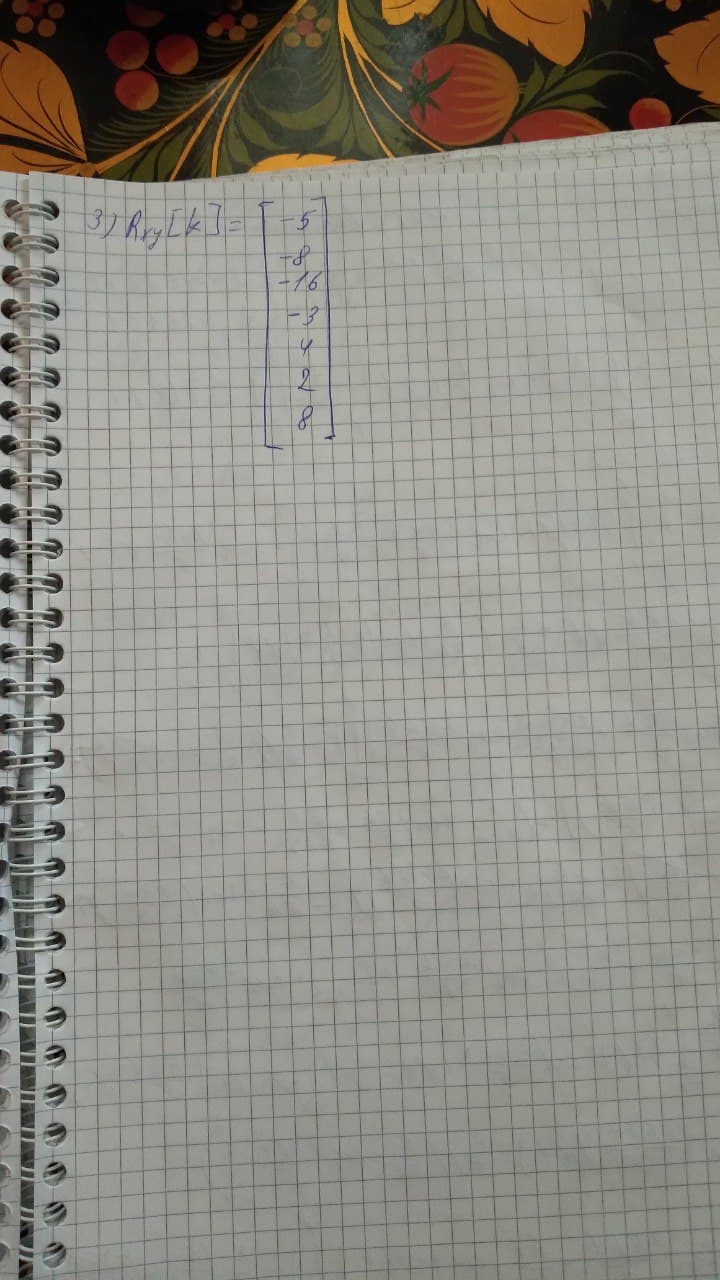 3) Rxy[k] = [ -5
-8
-16
-3
4
2
8 ]